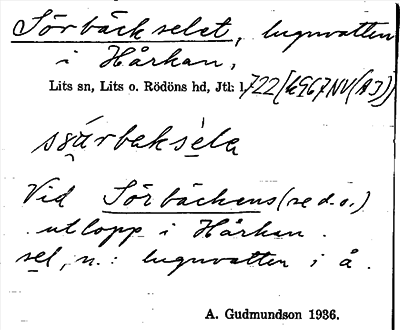 Sörbäckselet, lugnvatten
i Hårkan,
Lits sn, Lits o. Rödöns hd, Jtl: 1,722 [4967NV(AJ)]
Vid Sörbäckens (se d. o.)
utlopp i Hårkan.
sel, n.: lugnvatten i å.
A. Gudmundson 1936.